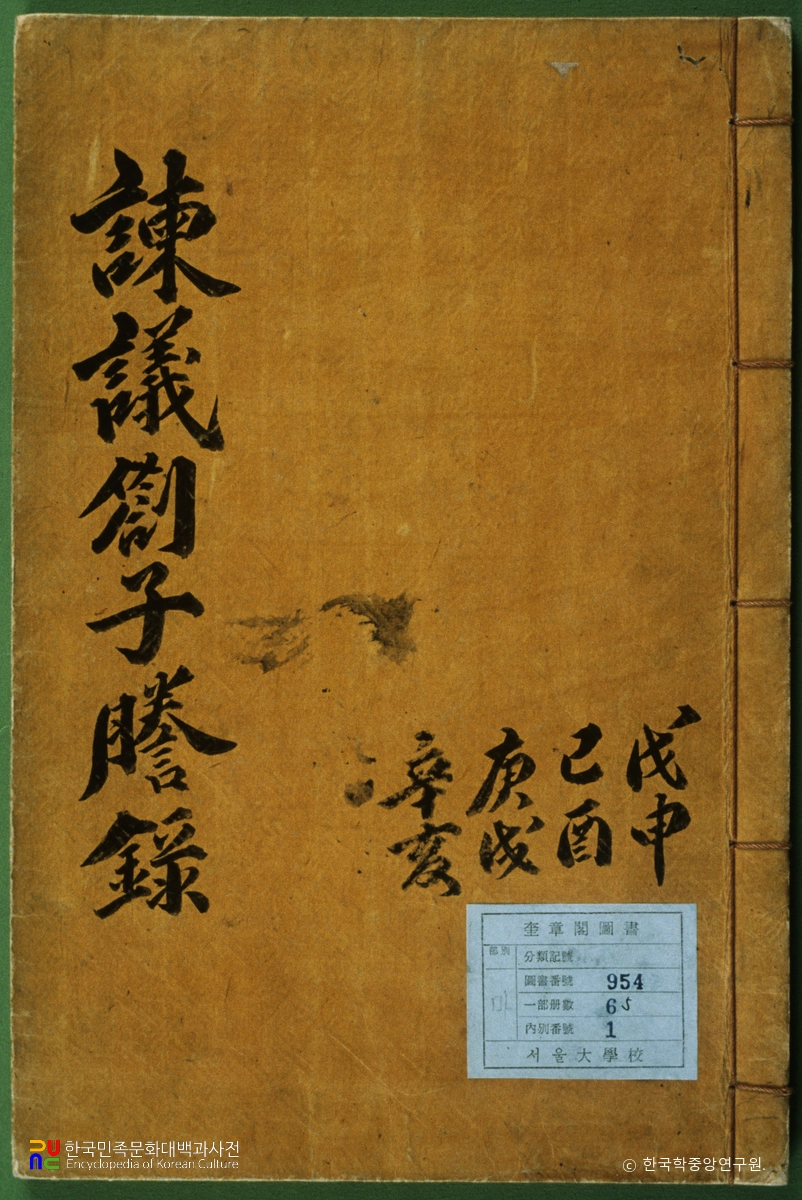 戊申
己酉
庚戌
辛亥
諫議劄子謄錄
奎章閣圖書
部別
分類記號
圖書番號 954
一部册數 6
內別番號 1
서울大學校
한국민족문화대백과사전
Encyclopedia of Korean Culture
© 한국학중앙연구원.